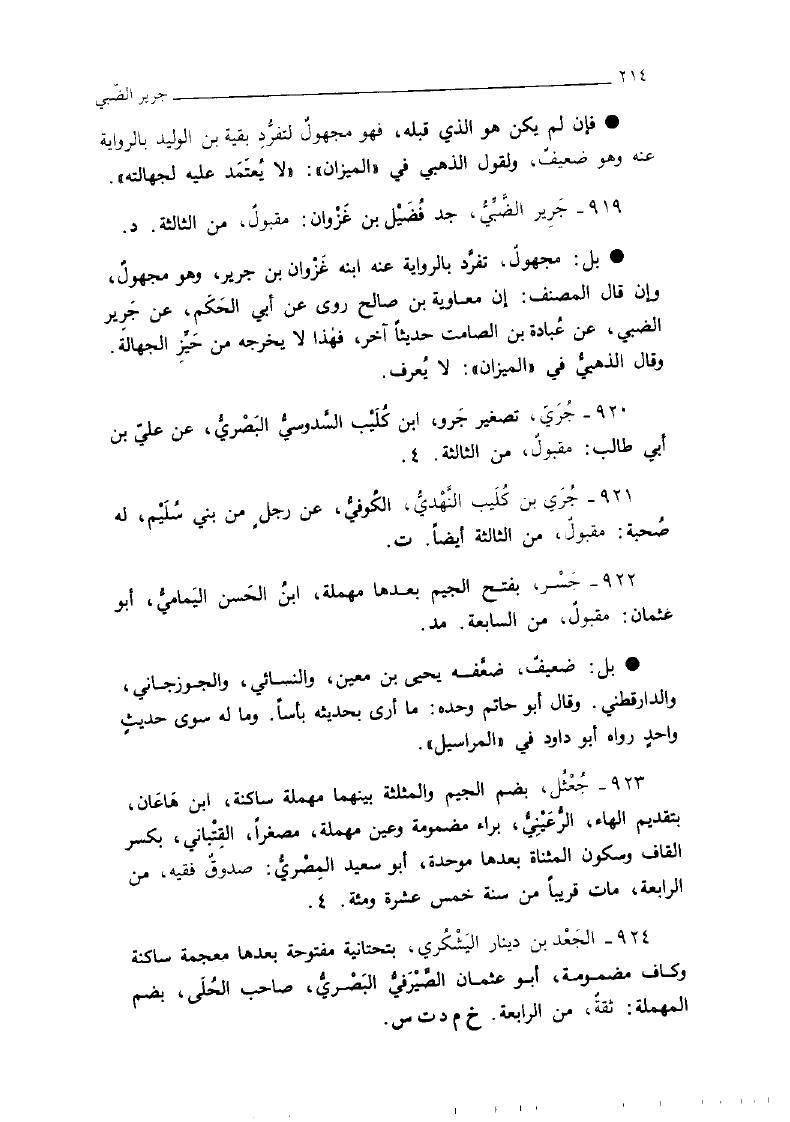 ٢١٤ جرير الضّبي
● فإن لم يكن هو الذي قبله، فهو مجهولٌ لتفرُّدِ بقية بن الوليد بالرواية
عنه وهو ضعيفٌ، ولقول الذهبي في «الميزان»: «لا يُعتَمَد عليه لجهالته».
٩١٩ـ جَرِير الضَّبِّيُّ، جد فُضَيْل بن غَزْوان: مقبولٌ، من الثالثة. د.
● بل: مجهولٌ، تفرَّد بالرواية عنه ابنه غَزْوان بن جرير، وهو مجهولٌ،
وإن قال المصنف: إن معـاوية بن صالح روى عن أبي الحَكَم، عن جَرِير
الضبي، عن عُبادة بن الصامت حديثاً آخر، فهٰذا لا يخرجه من حَيِّزِ الجهالة.
وقال الذهبيُّ في «الميزان»: لا يُعرف.
٩٢٠ـ جُرَيّ، تصغير جَرو، ابن كُلَيْب السَّدوسيُّ البَصْريُّ، عن عليّ بن
أبي طالب: مقبولٌ، من الثالثة. ٤.
٩٢١ـ جُرَي بن كُلَيب النَّهْديُّ، الكُوفيُّ، عن رجلٍ من بني سُلَيْم، له
صُحبة: مقبولٌ، من الثالثة أيضاً. ت.
٩٢٢ـ جَسْـر، بفتـح الجيم بعـدها مهملة، ابنُ الحَسن اليَماميُّ، أبو
عثمان: مقبولٌ، من السابعة. مد.
● بل: ضعيفٌ، ضعَّفـه يحيى بن معين، والنسـائي، والجـوزجـاني،
والدارقطني. وقال أبو حاتم وحده: ما أرى بحديثه بأساً. وما له سوى حديثٍ
واحدٍ رواه أبو داود في «المراسيل».
٩٢٣ـ جُعْثُل، بضم الجيم والمثلثة بينهما مهملة ساكنة، ابن هَاعَان،
بتقديم الهاء، الرُّعَيْنِيُّ، براء مضمومة وعين مهملة، مصغراً، القِتْباني، بكسر
القاف وسكون المثناة بعدها موحدة، أبو سعيد المِصْريُّ: صدوقٌ فقيه، من
الرابعة، مات قريباً من سنة خمس عشرة ومئة. ٤.
٩٢٤ـ الجَعْد بن دينار اليَشْكُري، بتحتانية مفتوحة بعدها معجمة ساكنة
وكـاف مضمـومـة، أبـو عثمـان الصَّيْرَفيُّ البَصْـريُّ، صاحب الحُلَى، بضم
المهملة: ثقةٌ، من الرابعة. خ م د ت س.